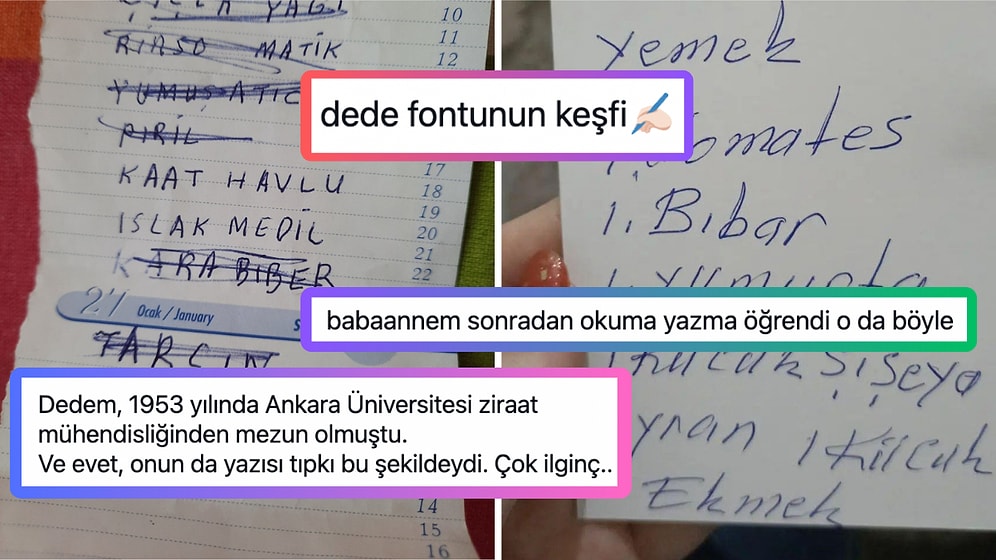 YAĞI 10
RİNSO MATİK 11
12
YUMUŞATIC
PIRIL
KAAT HAVLU 17
18
ISLAK MEDİL 19
20
KARA BİBER 21
22
Ocak / January S
TARÇIN
14
15
16
dede fontunun keşfi
babaannem sonradan okuma yazma öğrendi o da böyle
Dedem, 1953 yılında Ankara Üniversitesi ziraat
mühendisliğinden mezun olmuştu.
Ve evet, onun da yazısı tıpkı bu şekildeydi. Çok ilginç..
yemek
omates
1. Bibar
1. yumurta
Şişeyo
yran 1 Kilcuk
Ekmek